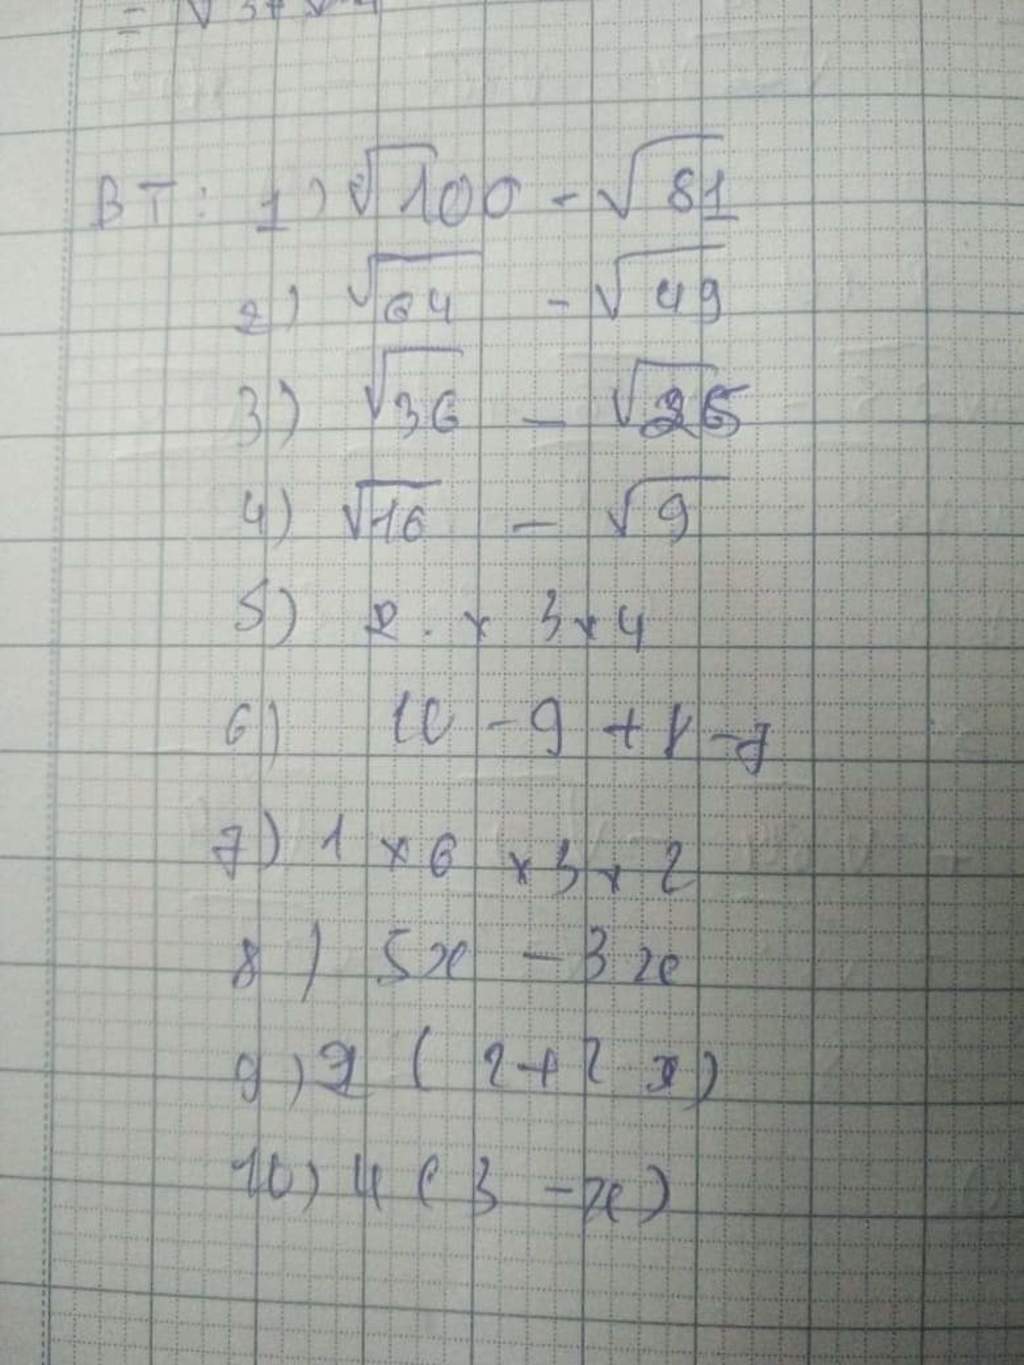 BT: 1) √100 - √81
2) √64 - √49
3) √36 - √25
4) √16 - √9
5) 2 . x 3 x 4
6) 10 - 9 + 8 - 7
7) 1 x 6 x 3 x 2
8) 5x - 3x
9) 2 ( 2 + 2 x)
10) 4 ( 3 - x)